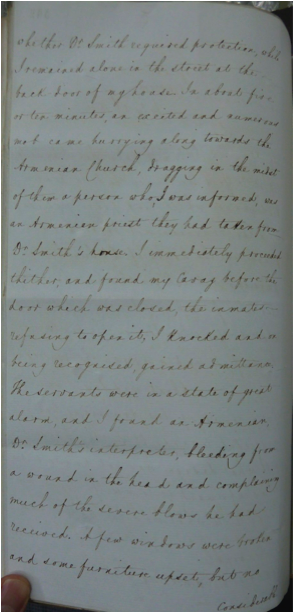 whether Dr Smith required protection, while
I remained alone in the street at the
back door of my house. In about five
or ten minutes, an excited and numerous
mob came hurrying along towards the
Armenian Church, dragging in the midst
of them a person who, I was informed, was
an Armenian priest they had taken from
Dr Smith's house. I immediately proceeded
thither, and found my Cavag before the
door which was closed, the inmates
refusing to open it, I knocked and on
being recognised, gained admittance.
The servants were in a state of great
alarm, and I found an Armenian,
Dr Smith's interpreter, bleeding from
a wound in the head and complaining
much of the severe blows he had
received. A few windows were broken
and some furniture upset, but no